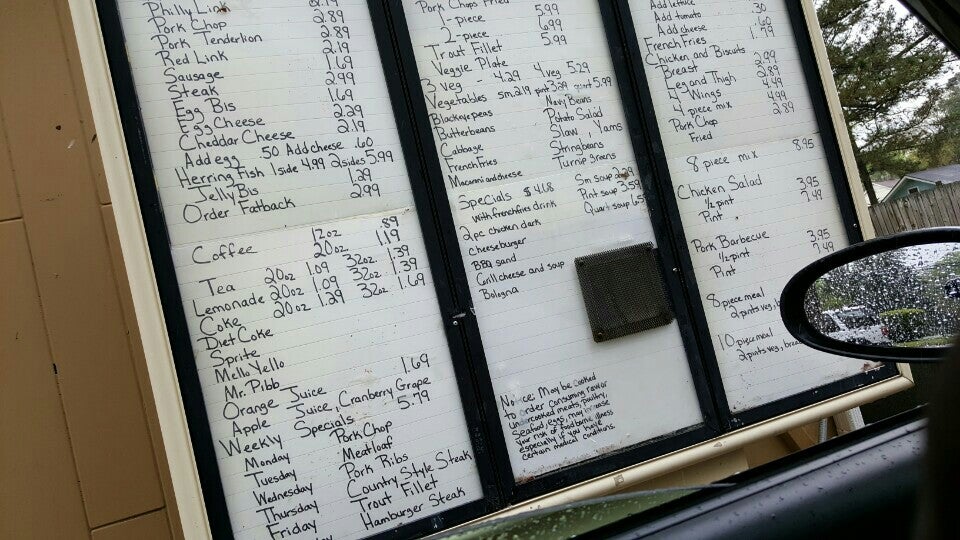 Philly Link 2.19
Pork Chop 2.89
Pork Tenderlion 2.89
Red Link 2.19
Sausage 1.69
Steak 2.99
Egg Bis 1.69
Egg Cheese 2.29
Cheddar Cheese 2.19
Add egg .50 Add cheese .60
Herring Fish 1 side 4.99 2 sides 5.99
Jelly Bis 1.29
Order Fatback 2.99
12oz .89
Coffee 20oz 1.19
Tea 20oz 1.09 32oz 1.39
Lemonade 20oz 1.09 32oz 1.39
Coke 20oz 1.29 32oz 1.69
Diet Coke
Sprite
Mello Yello
Mr. Pibb
Orange Juice 1.69
Apple Juice, Cranberry Grape
Weekly Specials 5.79
Monday Pork Chop
Tuesday Meatloaf
Wednesday Pork Ribs
Thursday Country Style Steak
Friday Trout Fillet
Hamburger Steak
Pork Chops Fried
1-piece 5.99
2-piece 6.99
Trout Fillet 5.99
Veggie Plate
3 veg - 4.29 4 veg 5.29
Vegetables sm 2.19 pint 3.29 quart 5.99
Blackeye peas Navy Beans
Butterbeans Potato Salad
Cabbage Slaw, Yams
French Fries Stringbeans
Macaroni and cheese Turnip greens
Specials $4.68 Sm. soup
with french fries drink Pint soup 3.59
2 pc chicken dark Quart soup
cheeseburger
BBQ sand
Grill cheese and soup
Bologna
Notice: May be cooked
to order consuming raw or
undercooked meats, poultry,
seafood, egg, may increase
your risk of foodborne illness
especially if you have
certain medical conditions.
Add lettuce
Add tomato .30
Add cheese .60
French Fries 1.79
Chicken and Biscuits
Breast 2.99
Leg and Thigh 2.89
4 Wings 4.99
4 piece mix 4.99
Pork Chop 2.89
Fried
8 piece mix 8.95
Chicken Salad
½ pint 3.95
Pint 7.49
Pork Barbecue
½ pint 3.95
Pint 7.49
8 piece meal
2 pints veg,
10 piece meal
2 pints veg,